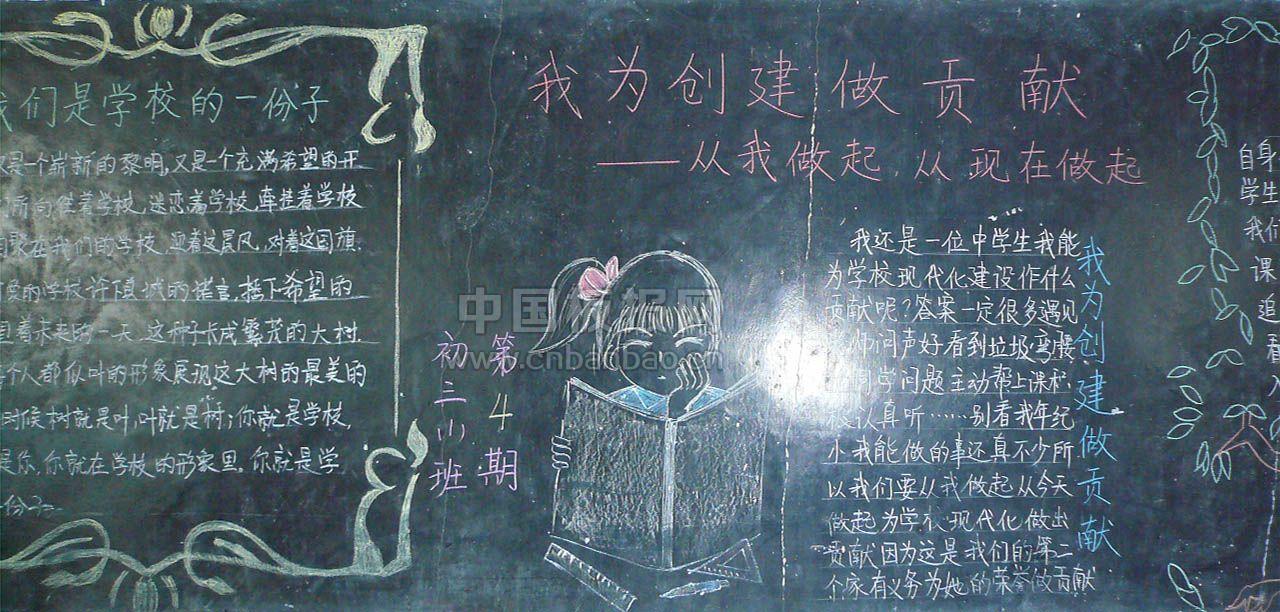 们是学校的一份子
是一个崭新的黎明,又是一个充满希望的开
所向往着学校,迷恋着学校,牵挂着学校
在我们的学校.迎着这晨风,对着这国旗.
爱的学校许下真诚的诺言,播下希望的
着未来的一天,这种子长成繁茂的大树.
个人都似叶的形象展现这大树的最美的
时候树就是叶,叶就是树;你就是学校,
是你,你就在学校的形象里.你就是学
份子
第4期
初二(1)班
我为创建做贡献
——从我做起,从现在做起
我还是一位中学生我能
为学校现代化建设作什么
贡献呢?答案一定很多遇见
师问声好看到垃圾弯腰
同学问题主动帮上课积
认真听……别看我年纪
小我能做的事还真不少所
以我们要从我做起从今天
做起为学校现代化做出
贡献因为这是我们的第二
个家有义务为她的荣誉做贡献
我为创建做贡献
自身
学生
我们
课
追
看
入
中国板报网
www.cnbanbao.cn